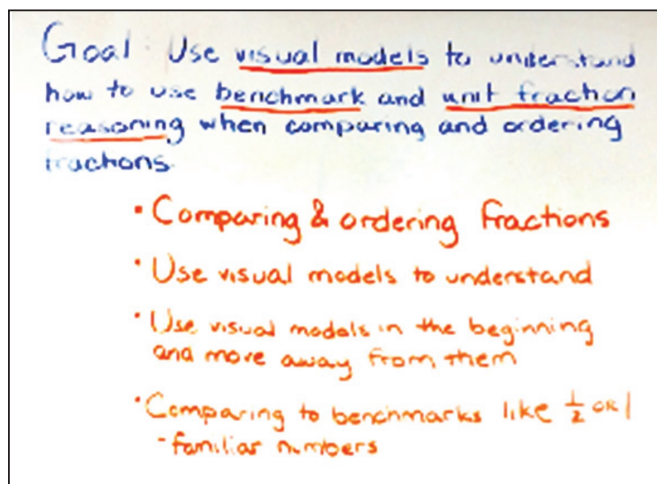 Goal: Use visual models to understand
how to use benchmark and unit fraction
reasoning when comparing and ordering
fractions.
• Comparing & ordering fractions
• Use visual models to understand
• Use visual models in the beginning
and more away from them
• Comparing to benchmarks like 1/2 OR 1
- familiar numbers